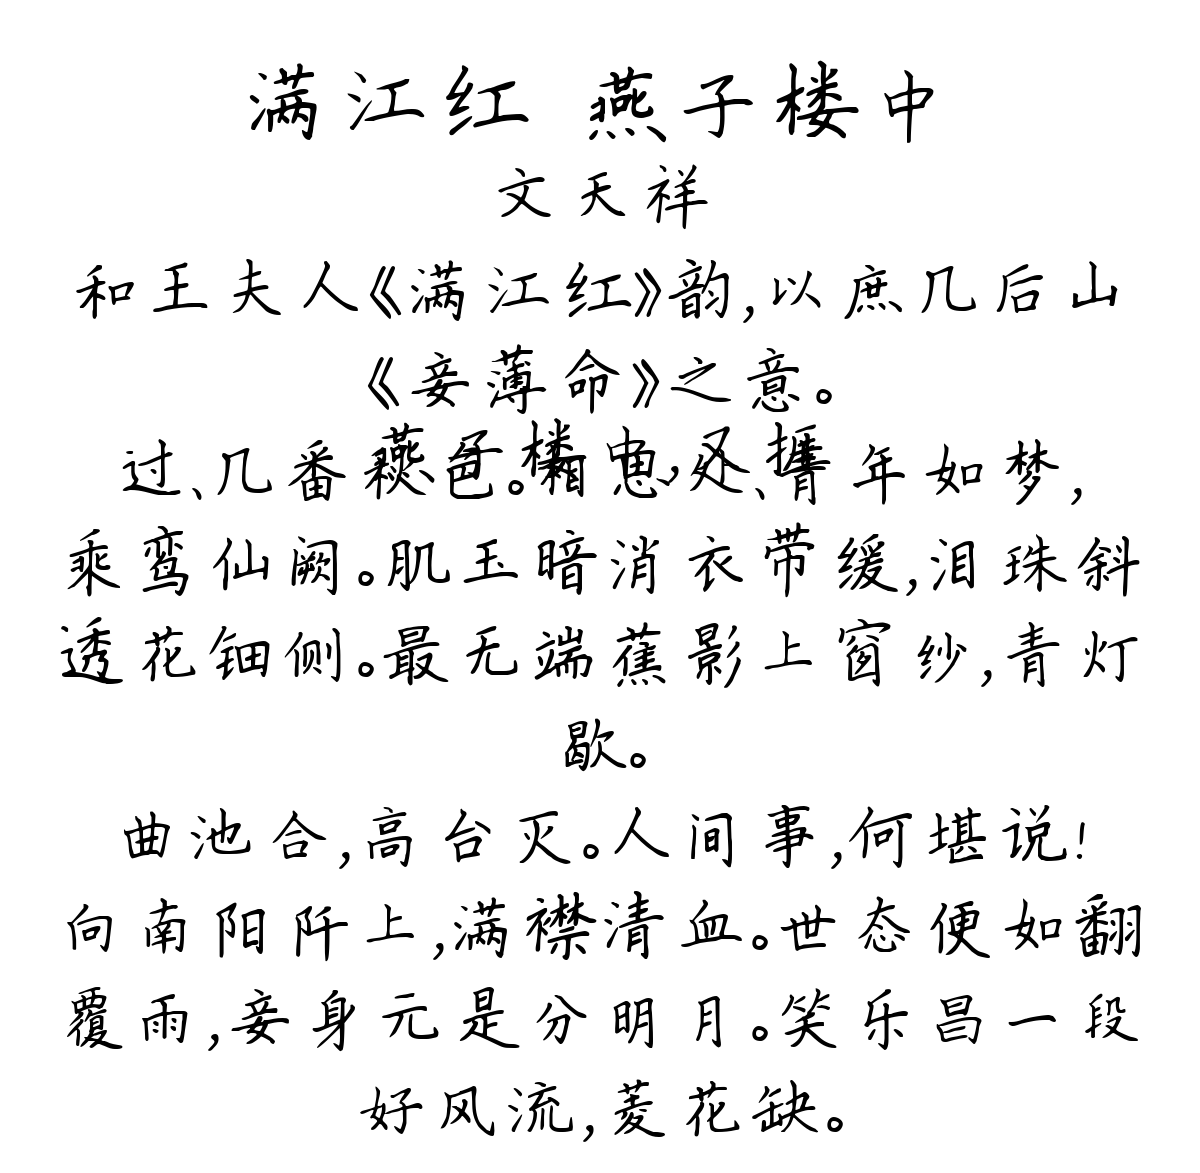 满江红 燕子楼中
文天祥
和王夫人《满江红》韵,以庶几后山
《妾薄命》之意。
燕子楼中,又捱
过、几番秋色。相思处、青年如梦,
乘鸾仙阙。肌玉暗消衣带缓,泪珠斜
透花钿侧。最无端蕉影上窗纱,青灯
歇。
曲池合,高台灭。人间事,何堪说!
向南阳阡上,满襟清血。世态便如翻
覆雨,妾身元是分明月。笑乐昌一段
好风流,菱花缺。